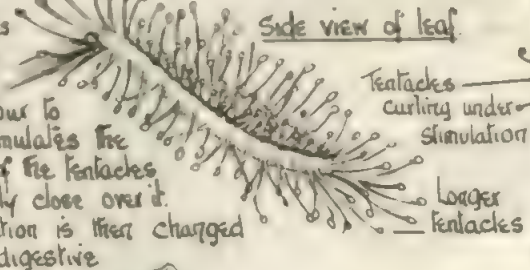 Side view of leaf
Tentacles
curling under
stimulation
Longer
tentacles
our to
mulates the
f the tentacles
ly close over it.
tion is then changed
digestive